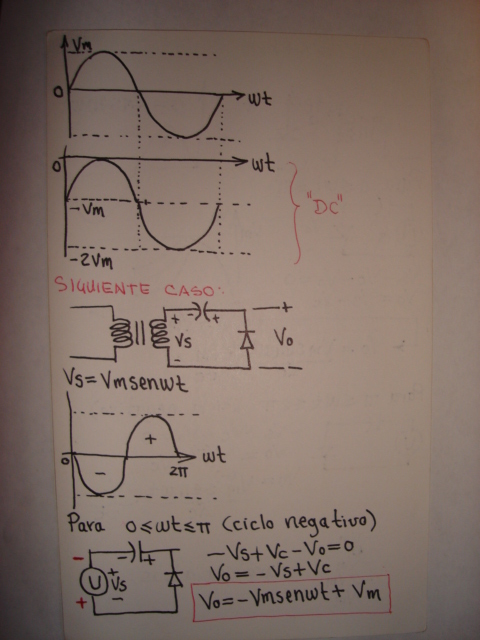 Vm
0
ωt
0
ωt
-Vm
"DC"
-2Vm
SIGUIENTE CASO:
+ - + +
Vs Vo
- -
Vs=Vmsenωt
+
0 - 2π ωt
Para 0≤ωt≤π (ciclo negativo)
- - +
-Vs+Vc-Vo=0
U + Vs
Vo=-Vs+Vc
+ -
Vo=-Vmsenωt+Vm